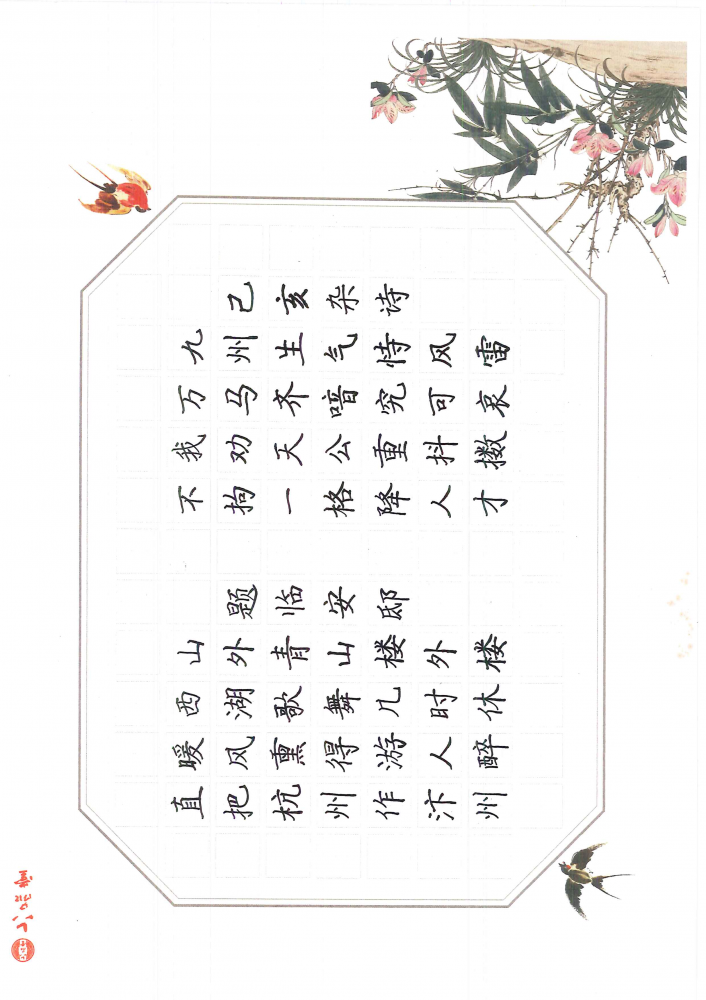 己亥杂诗
九州生气恃风雷
万马齐喑究可哀
我劝天公重抖擞
不拘一格降人才
题临安邸
山外青山楼外楼
西湖歌舞几时休
暖风熏得游人醉
直把杭州作汴州